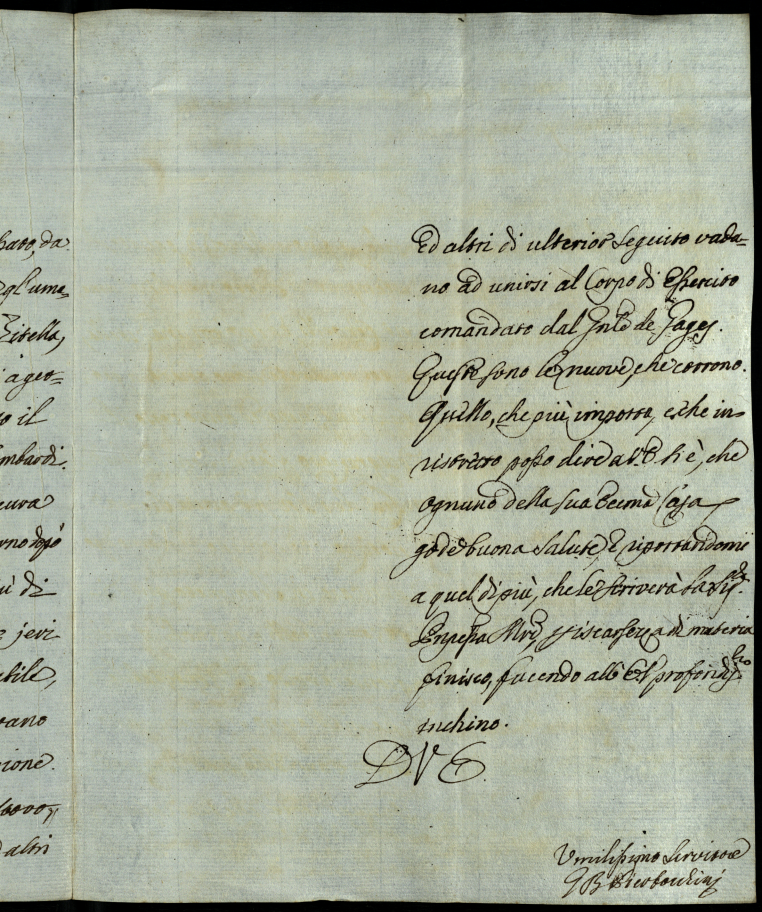 bato, da
gl'ume=
Zitella,
aget=
o il
mbardi.
cura
rno dopo
ù di
jeri
bile,
vano
ione.
altri
Ed altri di ulterior seguito vada=
no ad unirsi al Corpo di Esercito
comandato dal Gnle de Gages.
Queste sono le nuove, che corrono.
Quello, che più importa, e che in
ristretto posso dire a V.E. si è, che
ognuno della sua Eccma Casa
gode buona salute, E riportandomi
a quel di più, che le scriverà la
Enpessa Mre, p iscarsezza di materia
finisco, facendo all' E.V. profondissmo
inchino.
D V E
Umilissimo Servitore
G B